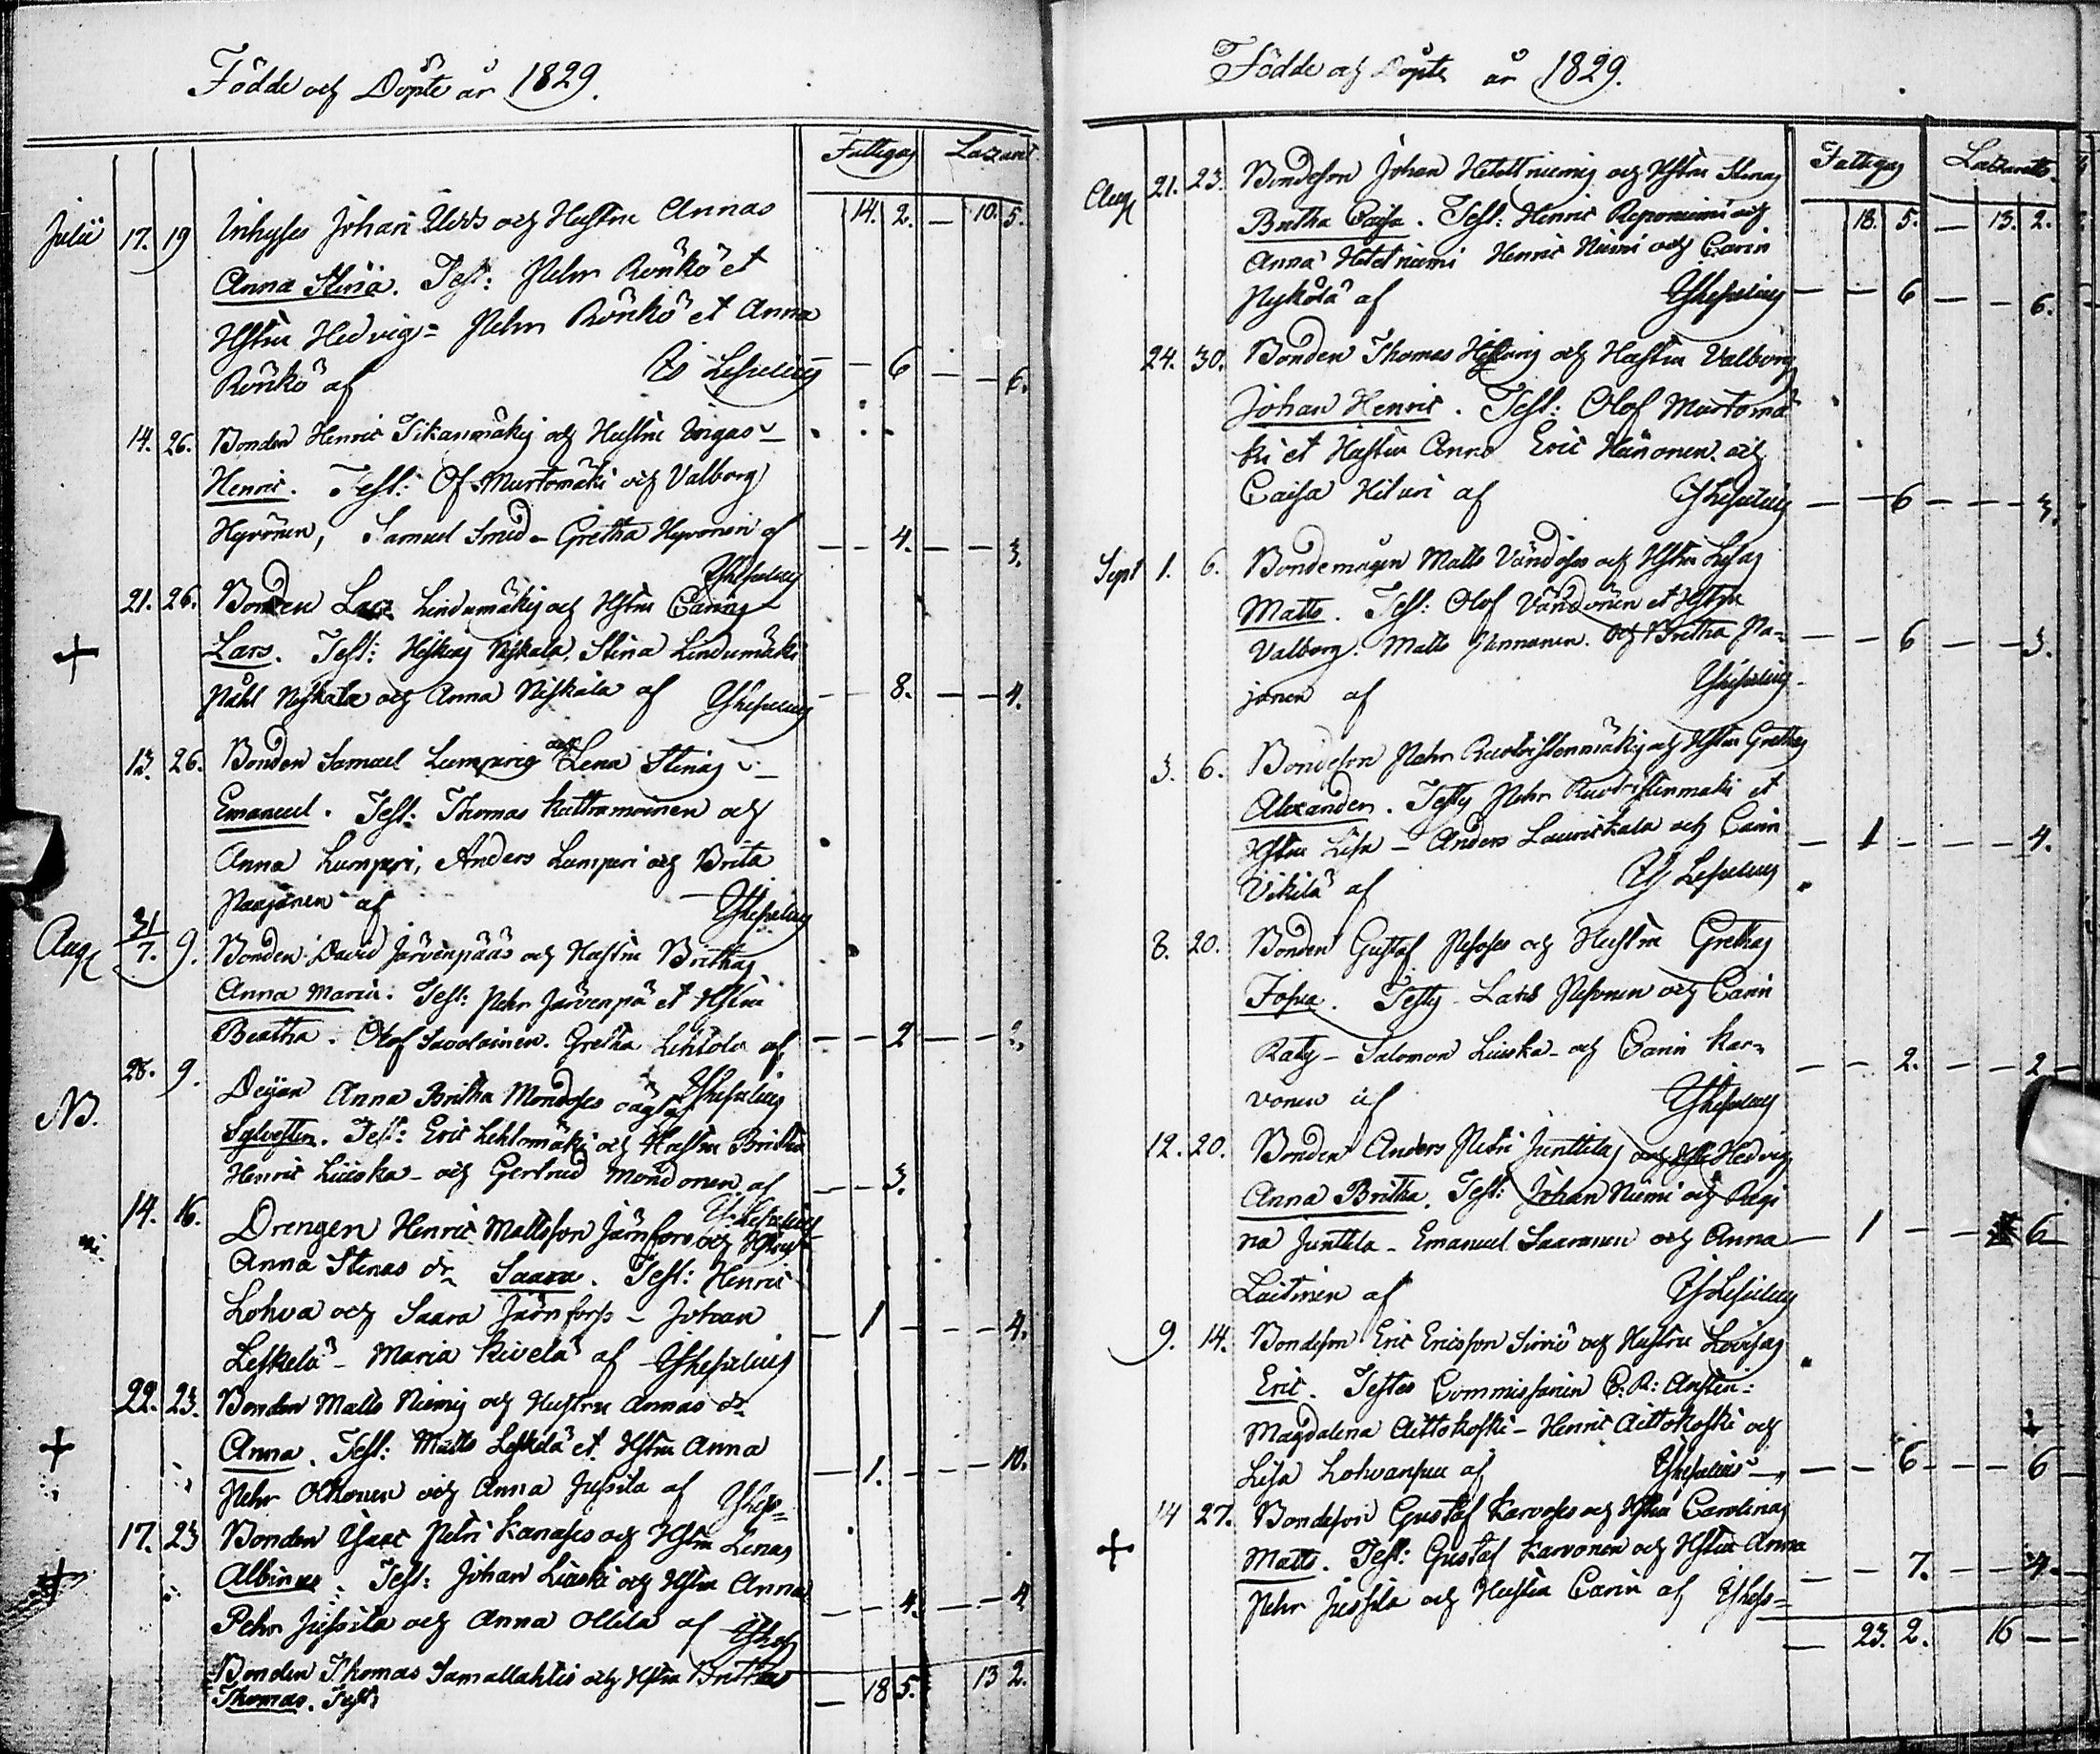 Födde och Döpte år 1829.
Fattigas Lazaret
Julii 17. 19 Inhyses Johan Ulvis och Hustru Annas 14. 2. — 10. 5.
Anna Stina. Test: Pehr Rönkö et
Hstru Hedvig = Pehr Rönkö et Anna
Rönkö af — 6 — — 6.
14. 26. Bonden Henric Tikanmäkis och Hustru Ingas
Henric. Test: Of Murtomäki och Valborg
Hyvönen, Samuel Smed - Gretha Hyvönen af — — 4. — — 3.
21. 26. Bonden Lars Lindumäkis och Hstru Carins
Lars. Test: Niskala, Stina Lindumäki
Påhl Niskala och Anna Niskala af — — 8. — — 4.
13. 26. Bonden Samuel Lumperis och Lena Stinas
Emanuel. Test: Thomas Kattramoinen och
Anna Lumperi, Anders Lumperi och Brita
Paajanen af
Aug 31/7. 9. Bonden David Järvenpääs och Hustru Brithas
Anna Maria. Test: Pehr Järvenpä et Hstru
Beatha. Olof Savolainen. Gretha Lehtola af — — 2 — — 2.
28. 9. Anna Britha
NB. Sylvester. Test: Eric Lehtomäki och Hustru Britha
Henric Liuska - och Gertrud Mondonen af — — 3.
14. 16. Drengen Henric Mattsson Järnfors och Hstru
Anna Stinas dr Saara. Test: Henric
Lohva och Saara Järnfors - Johan — 1 — — 4.
Leskelä - Maria Kivelä af
22. 23. Bonden Matts Niemis och Hustru Annas dr
Anna. Test: Matts Leskelä et Hstru Anna
Pehr Olkonen och Anna Jussila af — 1. — — 10.
17. 23 Bonden Isaac Petri Kanases och Hstru Lenas
Albinus: Test: Johan Liuski och Hstru Anna
Pehr Jussila och Anna Ollila af — — 4. — — 4
Bonden Thomas Samallahtis och Hstru Brithas
Thomas. Test: — 18 5. 13 2.
Födde och Döpte år 1829.
Fattigas Lazaretts
Aug 21. 23. Bondeson Johan Hetetniemis och Hstru Stinas
Britha Caisa. Test: Henric Reponiemi och 18. 5. — 13. 2.
Anna Hetetniemi Henric Niemi och Carin
Nykölä af — — 6 — — 6.
24. 30. Bonden Thomas och Hustru Valborgs
Johan Henric. Test: Olof Murtomä
ki et Hustru Anna Eric Hänönen och
Caisa Hiluri af — — 6 — — 3.
Sept 1. 6. Bondemågen Matts och Hstru Lisas
Matts. Test: Olof et Hstru
Valborg. Matts och Britha Pa= — — 6 — — 3.
janen af
3. 6. Bondeson Pehr Ruotsistenmäkis och Hstru Grethas
Alexander. Test: Pehr Ruotsistenmäki et
Hstru Lisa - Anders Lauriskala och Carin — 1 — — 4.
Vikilä af
8. 20. Bonden Gustaf och Hustru Grethas
Josua. Test: Lars och Carin
Räty - Salomon Liuska - och Carin Kar= — — 2. — — 2
vonen af
12. 20. Bonden Anders Petri Junttilas och Hedvigs
Anna Britha. Test: Johan Niemi och Regi
na Junttila - Emanuel Saaranen och Anna — 1 — — 6
Laitinen af
9. 14. Bondeson Eric Ericsson Sirviö och Hustru Lovisas
Eric. Testes Commissarien C: R: Austen:
Magdalena Aittokoski - Henric Aittokoski och
Lisa Lohvansuu af — — 6 — — 6
14 27. Bondeson Gustaf Karvoses och Hstru Carolinas
Matts. Test: Gustaf Karvonen och Hstru Anna
Pehr Jussila och Hustru Carin af — — 7. — — 4.
— 23. 2. 16 — —